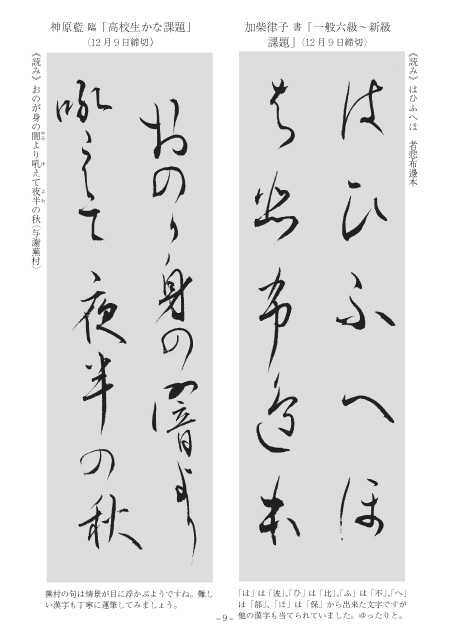 加柴律子 書「一般六級～新級
課題」(12月9日締切)
《読み》はひふへほ 者悲布邊本
はひふへほ
者悲布邊本
「は」は「波」、「ひ」は「比」、「ふ」は「不」、「へ」
は「部」、「ほ」は「保」から出来た文字ですが
他の漢字も当てられていました。ゆったりと。
神原藍 臨「高校生かな課題」
(12月9日締切)
おのが身の闇より
吼えて夜半の秋
《読み》おのが身の闇より吼えて夜半の秋(与謝蕪村)
蕪村の句は情景が目に浮かぶようですね。難し
い漢字も丁寧に運筆してみましょう。
- 9 -